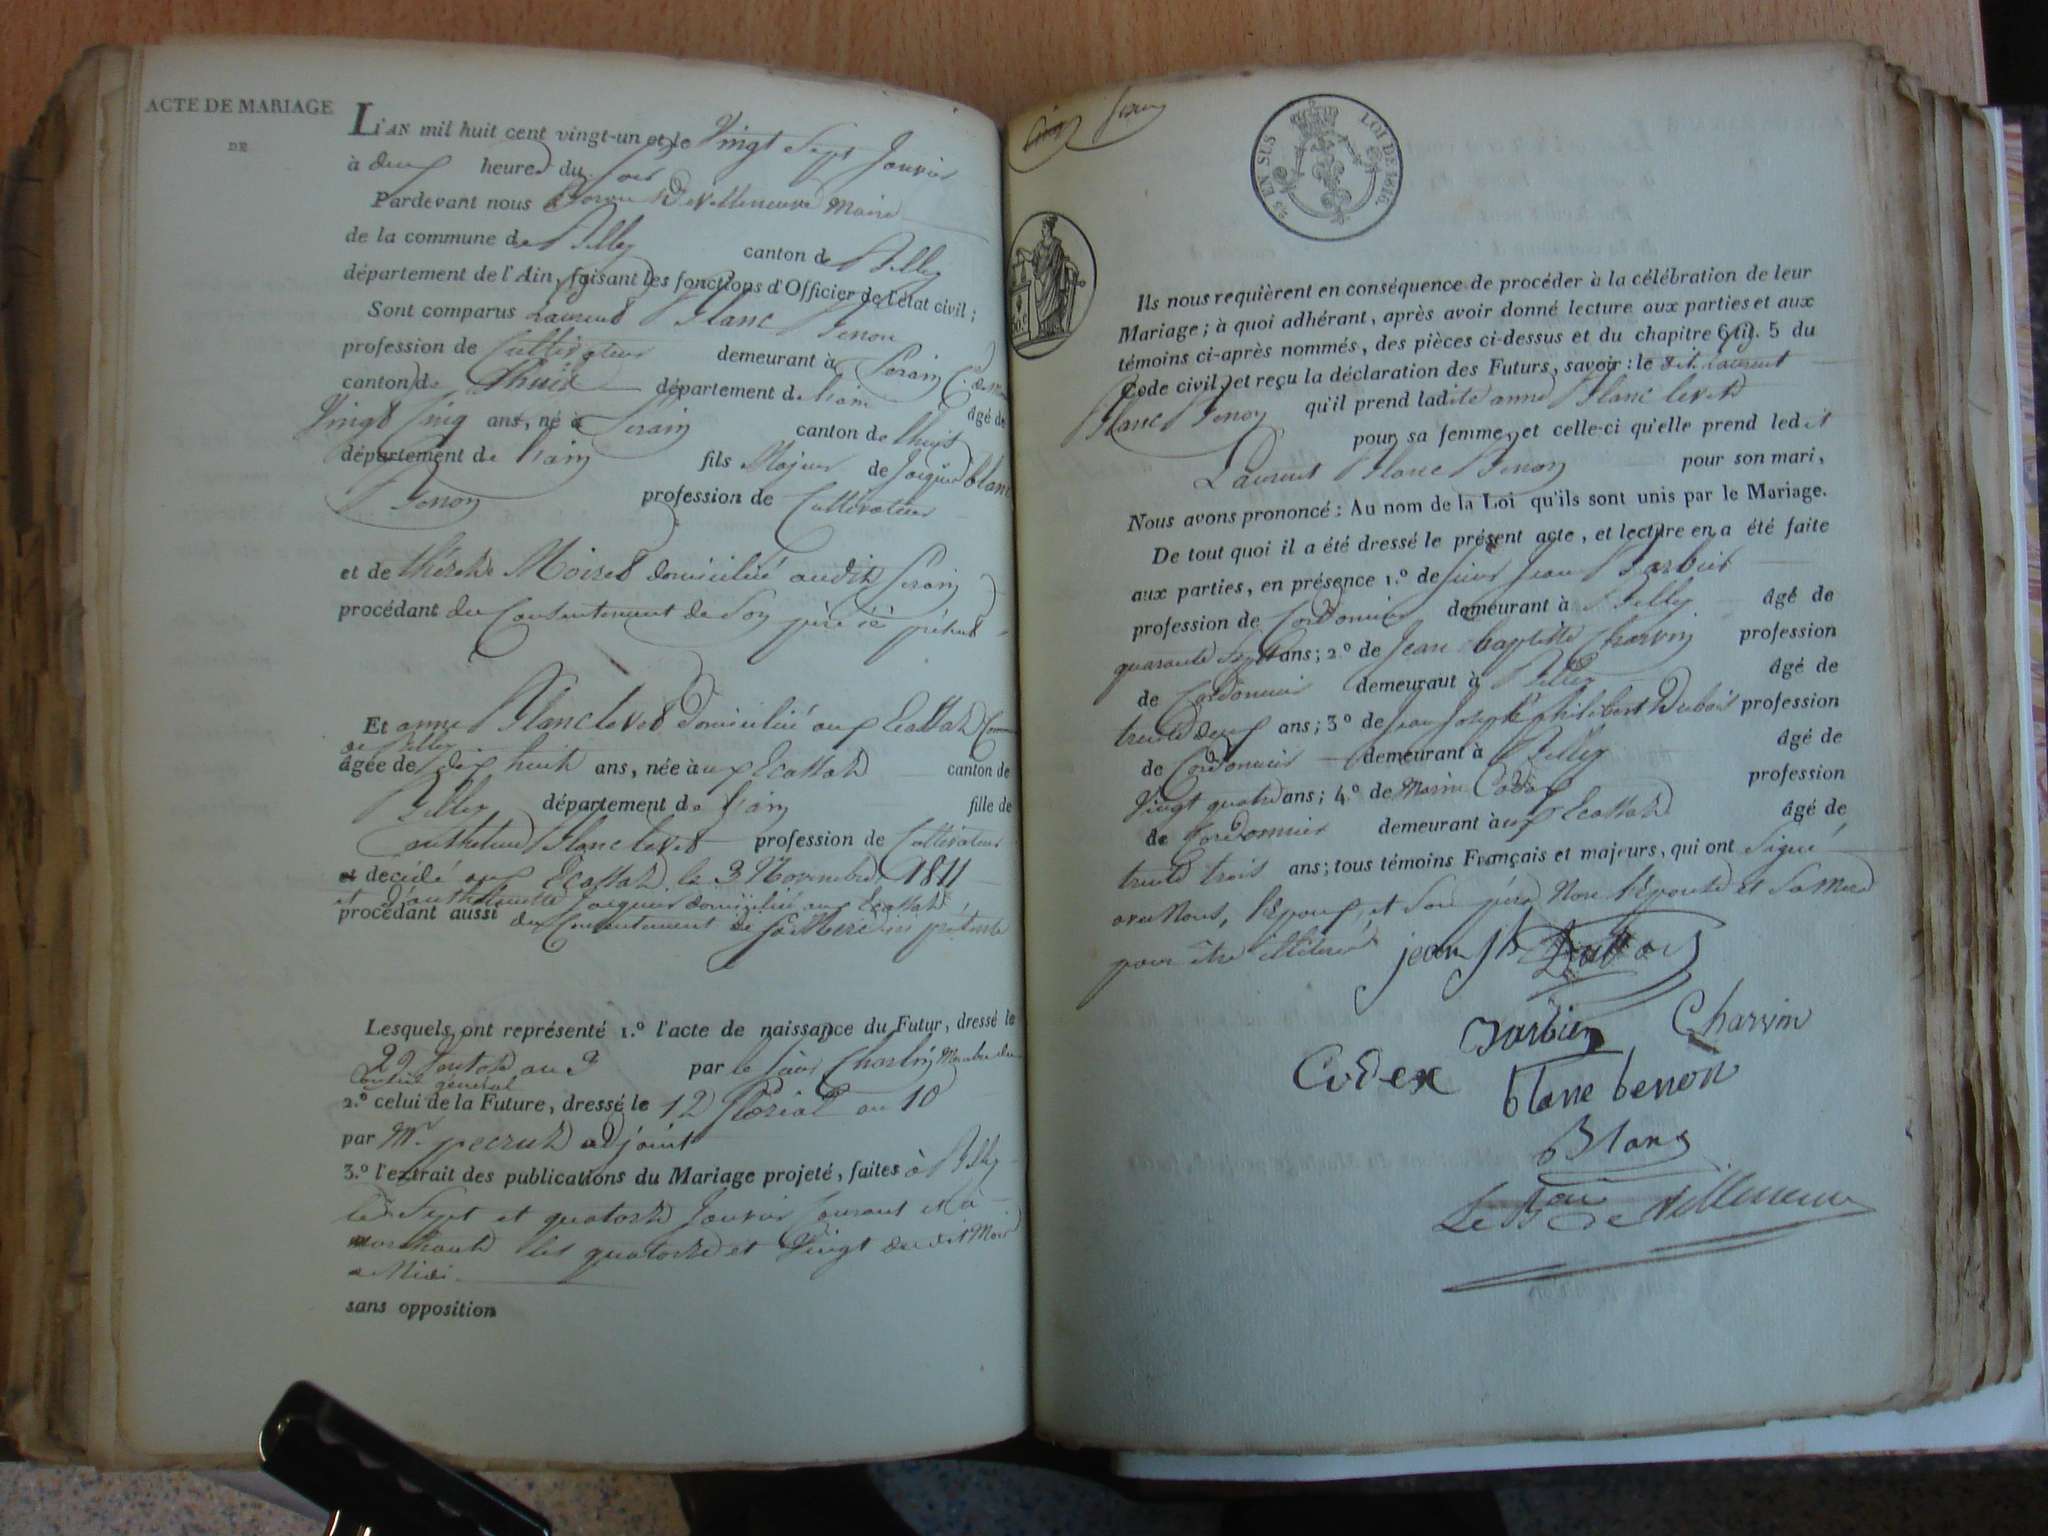 ACTE DE MARIAGE
DE
L'AN mil huit cent vingt-un et le Vingt Sept Janvier
à deux heures du soir
Pardevant nous Baron De Villeneuve Maire
de la commune de Belley canton de Belley
département de l'Ain, faisant les fonctions d'Officier de l'état civil;
Sont comparus Laurent Blanc Benon
profession de Cultivateur demeurant à Perain
canton de Lhuis département de l'ain âgé de
Vingt Cinq ans, né à Perain canton de Lhuis
département de l'ain fils Majeur de Jacques blanc
Benon profession de Cultivateur
et de thérèse Moiret domicilié audit Perain
procédant du Consentement de Son père ici présent
Et anne Blanc levet domiciliée aux Ecassaz Commune
de Belley
âgée de dix huit ans, née aux Ecassaz canton de
Belley département de l'ain fille de
anthelme Blanc levet profession de Cultivateur
et décédé aux Ecassaz le 3 Novembre 1811
et d'anthelmette Jacquet domiciliée aux Ecassaz
procédant aussi du Consentement de Sa Mère ici présente
Lesquels ont représenté 1.º l'acte de naissance du Futur, dressé le
29 Ventose an 3 par le Citoyen Charlin Membre du
Conseil général
2.º celui de la Future, dressé le 12 floreal an 10
par Mr. pecrut adjoint
3.º l'extrait des publications du Mariage projeté, faites à Belley
les Sept et quatorze Janvier Courant et à
les quatorze et Vingt du dit Mois
à Midi
sans opposition
25 EN SUS LOI DE 1816.
Ils nous requièrent en conséquence de procéder à la célébration de leur
Mariage; à quoi adhérant, après avoir donné lecture aux parties et aux
témoins ci-après nommés, des pièces ci-dessus et du chapitre 6 tit. 5 du
Code civil, et reçu la déclaration des Futurs, savoir: le dit Laurent
Blanc Benon qu'il prend ladite anne Blanc levet
pour sa femme, et celle-ci qu'elle prend ledit
Laurent Blanc Benon pour son mari,
Nous avons prononcé: Au nom de la Loi qu'ils sont unis par le Mariage.
De tout quoi il a été dressé le présent acte, et lecture en a été faite
aux parties, en présence 1.º de Jean Barbier
profession de Cordonnier demeurant à Belley âgé de
quarante Sept ans; 2.º de Jean baptiste Charvin profession
de Cordonnier demeurant à Belley âgé de
trente deux ans; 3.º de Jean Joseph philibert Dubois profession
de Cordonnier demeurant à Belley âgé de
Vingt quatre ans; 4.º de Marin Codex profession
de Cordonnier demeurant aux Ecassaz âgé de
trente trois ans; tous témoins Français et majeurs, qui ont Signé
avec Nous, l'Epoux et Son père Non l'Epouse et Sa Mère
pour être illitérés
jean jh Dubois
Barbier Charvin
Codex blanc benon
Blanc
Le Bon de Villeneuve